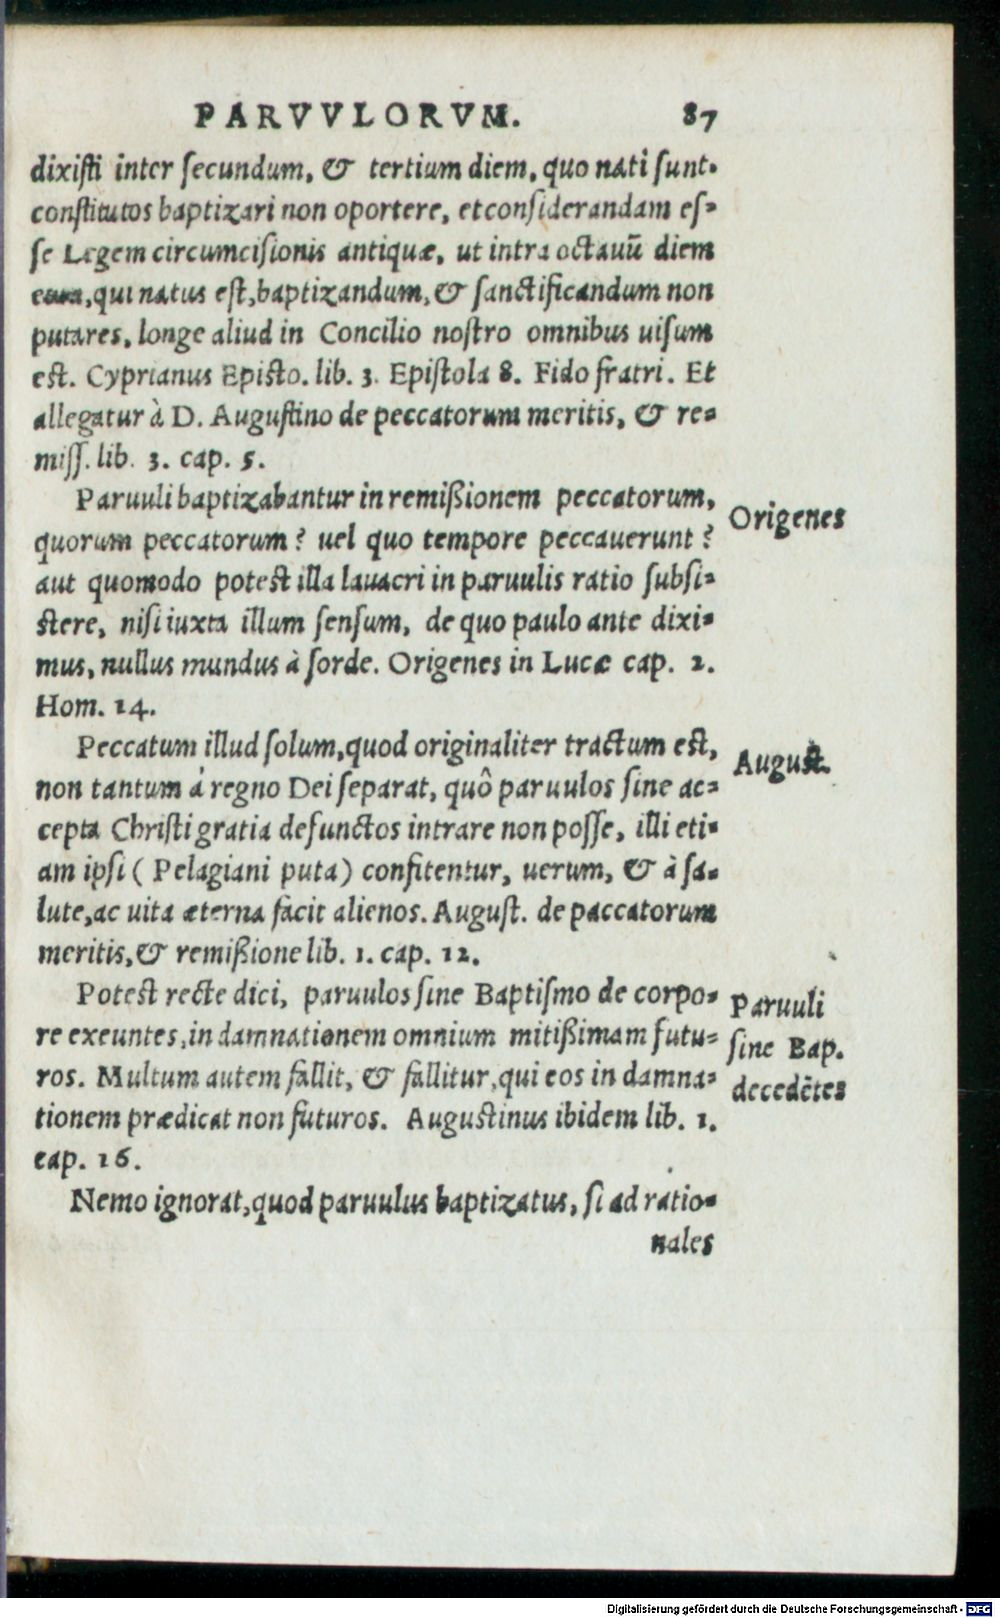 PARVVLORVM. 87
dixisti inter secundum, & tertium diem, quo nati sunt.
constitutos baptizari non oportere, et considerandam es-
se Legem circumcisionis antiquæ, ut intra octauū diem
eum, qui natus est, baptizandum, & sanctificandum non
putares, longe aliud in Concilio nostro omnibus uisum
est. Cyprianus Episto. lib. 3. Epistola 8. Fido fratri. Et
allegatur à D. Augustino de peccatorum meritis, & re-
miss. lib. 3. cap. 5.
Paruuli baptizabantur in remißionem peccatorum,
Origenes
quorum peccatorum? uel quo tempore peccauerunt?
aut quomodo potest illa lauacri in paruulis ratio subsi-
stere, nisi iuxta illum sensum, de quo paulo ante dixi-
mus, nullus mundus à sorde. Origenes in Lucæ cap. 2.
Hom. 14.
Peccatum illud solum, quod originaliter tractum est,
August.
non tantum à regno Dei separat, quô paruulos sine ac-
cepta Christi gratia defunctos intrare non posse, illi eti-
am ipsi (Pelagiani puta) confitentur, uerum, & à sa-
lute, ac uita æterna facit alienos. August. de paccatorum
meritis, & remißione lib. 1. cap. 12.
Potest recte dici, paruulos sine Baptismo de corpo-
Paruuli
re exeuntes, in damnationem omnium mitißimam futu-
sine Bap.
ros. Multum autem fallit, & fallitur, qui eos in damna-
decedētes
tionem prædicat non futuros. Augustinus ibidem lib. 1.
cap. 16.
Nemo ignorat, quod paruulus baptizatus, si ad ratio-
nales
Digitalisierung gefördert durch die Deutsche Forschungsgemeinschaft - DFG